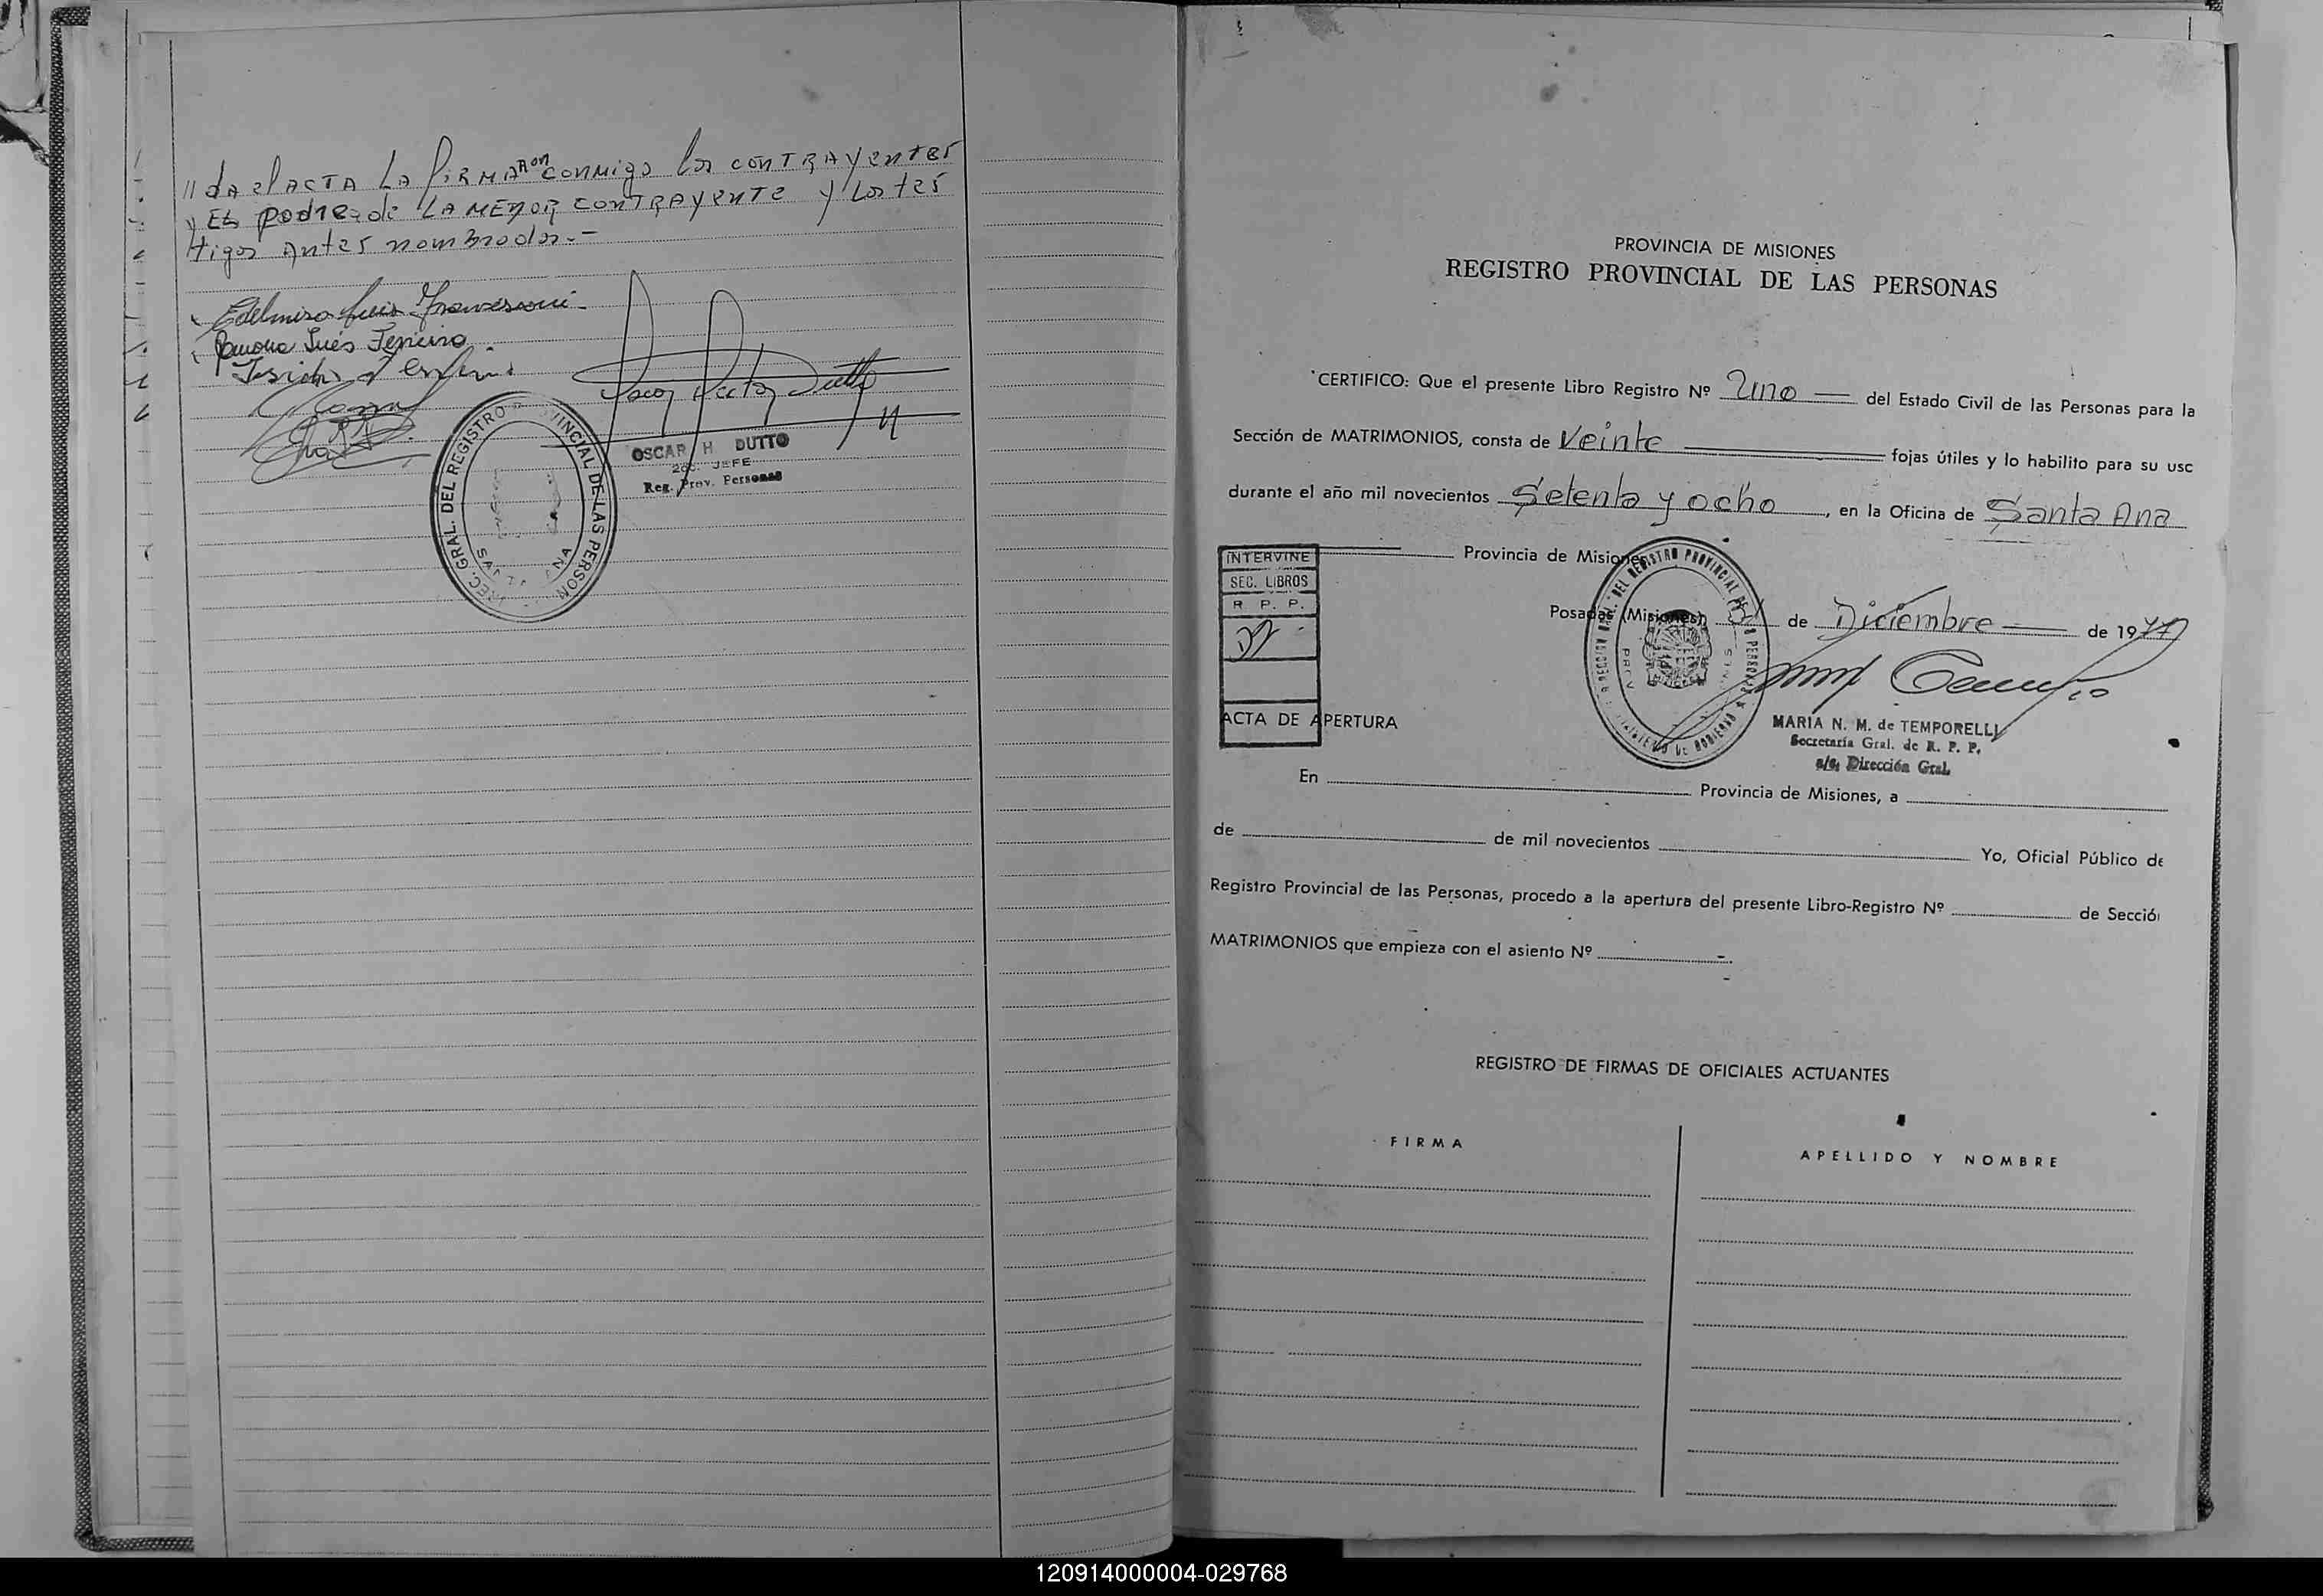 // da el ACTA LA FiRMARon conmigo los CONTRAYENTES
y EL padre de LA MENOR CONTRAYENTE y Los tes
tigos Antes nombrados.-
Edelmiro Luis Franzesoni
Ramona Inés Ferreira
Isidro
DIREC. GRAL. DEL REGISTRO PROVINCIAL DE LAS PERSONAS
SANTA ANA
OSCAR H. DUTTO
JEFE
Reg. Prov. Personas
PROVINCIA DE MISIONES
REGISTRO PROVINCIAL DE LAS PERSONAS
CERTIFICO: Que el presente Libro Registro Nº Uno — del Estado Civil de las Personas para la
Sección de MATRIMONIOS, consta de Veinte — fojas útiles y lo habilito para su uso
durante el año mil novecientos Setenta y ocho, en la Oficina de Santa Ana
Provincia de Misiones
INTERVINE
SEC. LIBROS
R. P. P.
Posadas (Misiones) de Diciembre — de 1977
MARIA N. M. de TEMPORELLI
Secretaría Gral. de R. P. P.
a/c. Dirección Gral.
ACTA DE APERTURA
En Provincia de Misiones, a
de de mil novecientos Yo, Oficial Público de
Registro Provincial de las Personas, procedo a la apertura del presente Libro-Registro Nº de Secció
MATRIMONIOS que empieza con el asiento Nº
REGISTRO DE FIRMAS DE OFICIALES ACTUANTES
FIRMA
APELLIDO Y NOMBRE
120914000004-029768